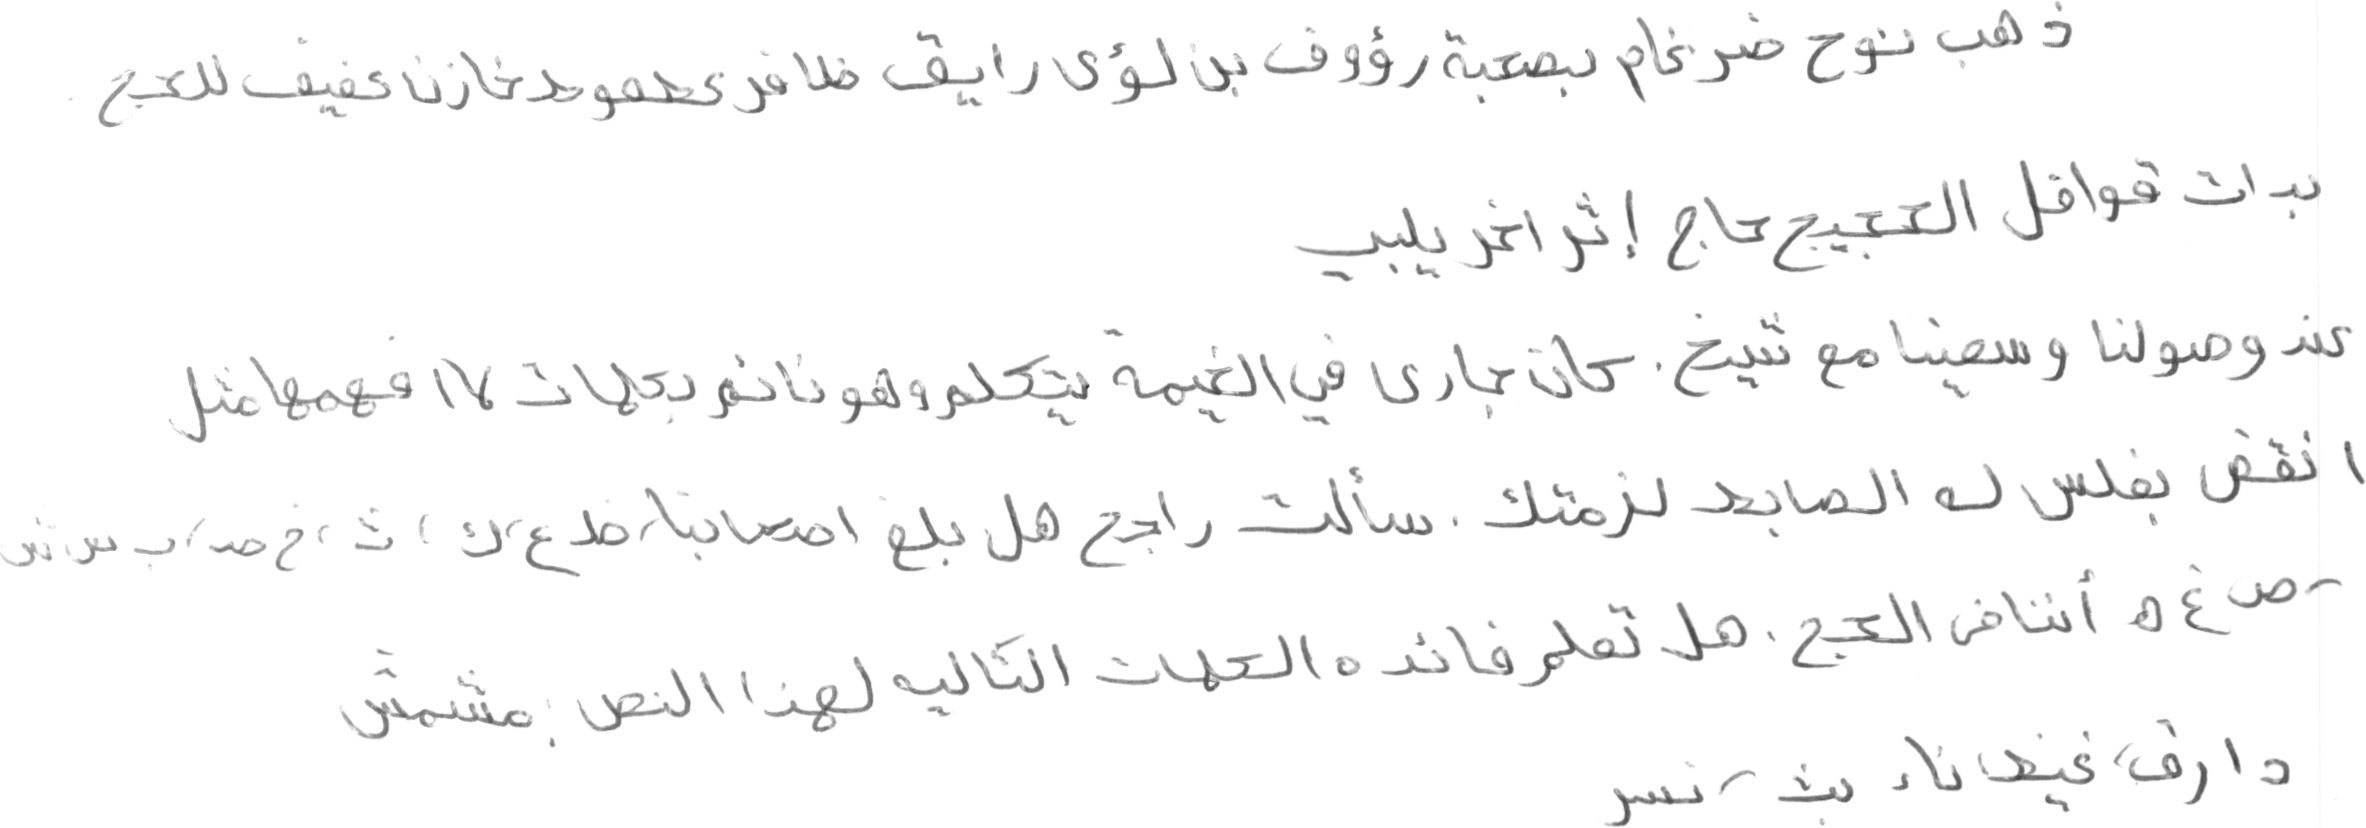 ذهب نوح ضرغام بصحبة رؤوف بن لؤى رايق ظافر محمود خازن عفيف للحج.
بدات قوافل الحجيج حاج إثر اخر يلبي
عند وصولنا وسعينا مع شيخ. كان جارى في الخيمة يتكلم وهو نائم بكلمات لا افهمها مثل
انقض بغلس له الصابط لزمتك. سألت راجح هل بلغ اصحابنا، ظ ع، ك، ث، خ ص، ب س ش
، ص غ ه أثناء الحج. هل تعلم فائده الكلمات التاليه لهذا النص: مشمش
دارف، غيط، ناء بث، نسر